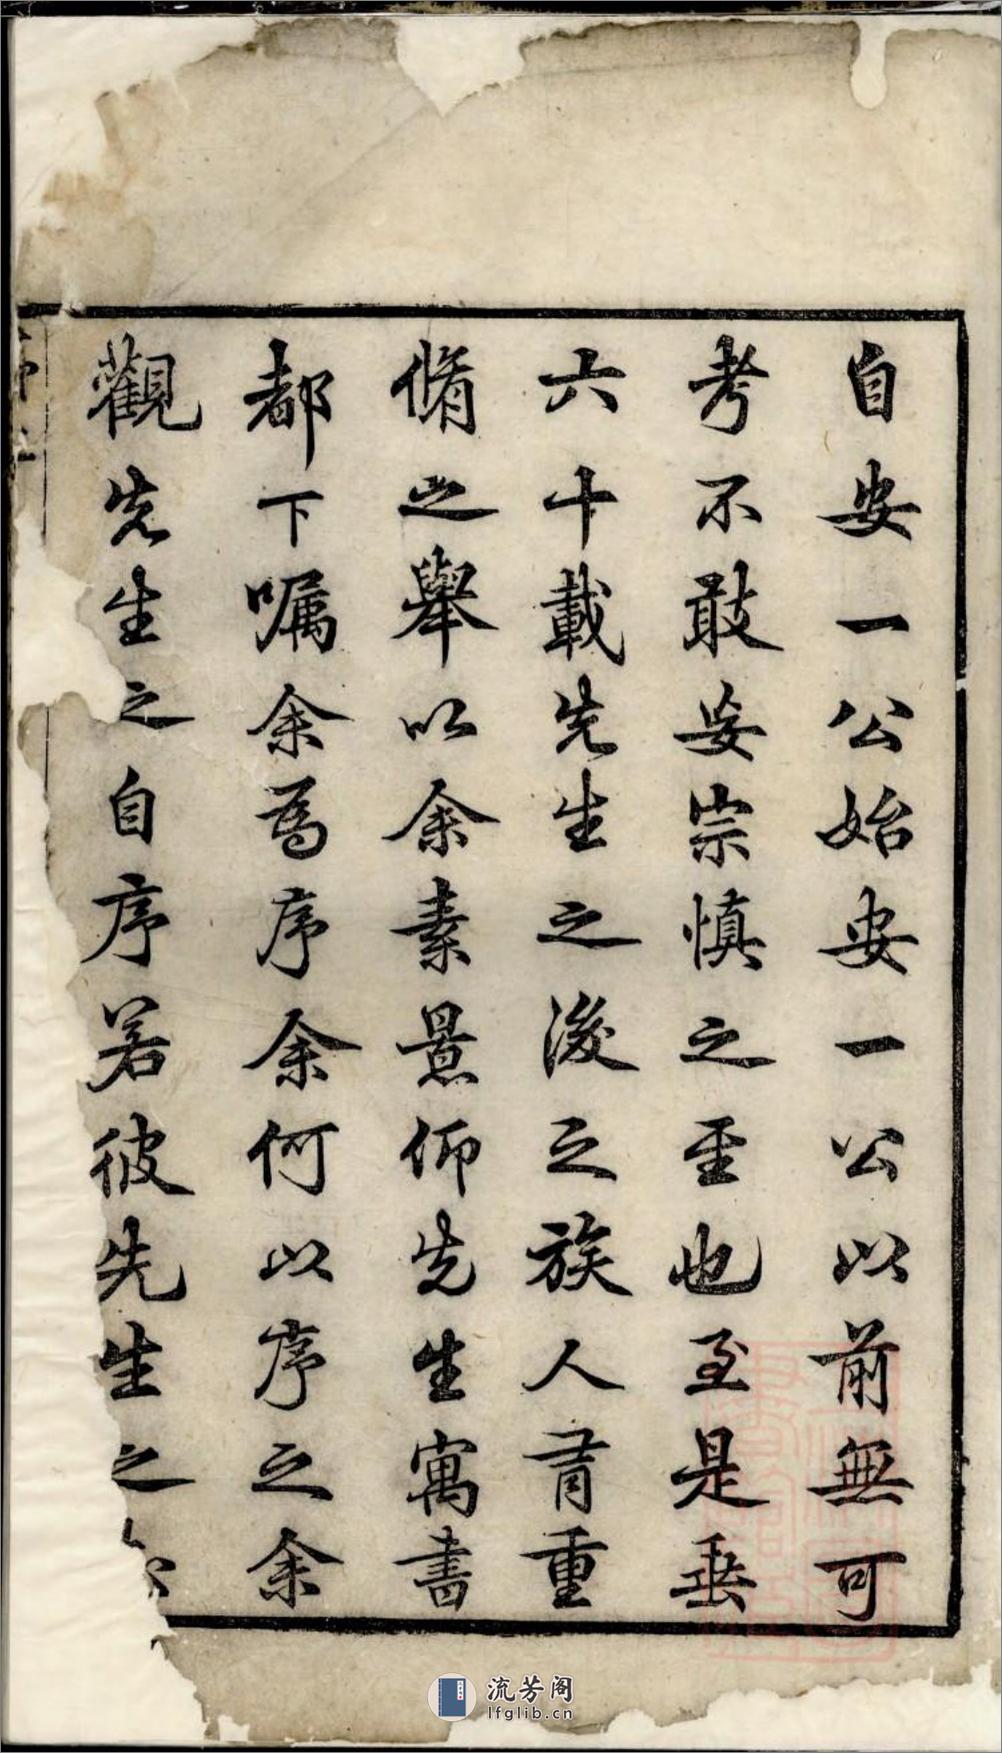 自安一公始安一公以前無可
考不敢妄宗慎之至也至是垂
六十載先生之後之族人有重
脩之舉以余素景仰先生寓書
都下嘱余為序余何以序之余
觀先生之自序若彼先生之
流芳阁
lfglib.cn